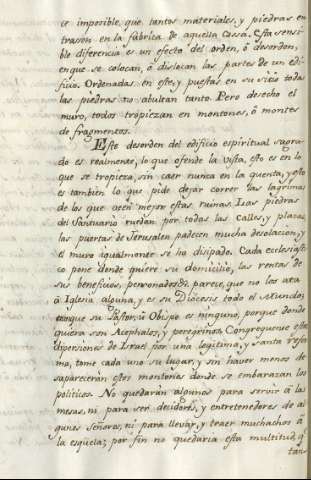 ce imposible, que tantos materiales, y piedras en
trason en la fabrica de aquella Cassa. Esta sensi
ble diferencia es un efecto del orden, ô desorden,
en que se colocan, ô dislocan las partes de un edi-
ficio. Ordenadas en este, y puestas en su sitio todas
las piedras no abultan tanto. Pero desecho el
muro, todos tropiezan en montones, ô montes
de fragmentos.
Este desorden del edificio espiritual sagra-
do es realmente, lo que ofende la vista, esto es en lo
que se tropieza, sin caer nunca en la quenta, y esto
es tambien lo que pide dejar correr las lagrimas
de los que veen mejor estas ruinas. Las piedras
del Santuario ruedan por todas las calles, y plazas,
las puertas de Jerusalen padecen mucha desolacion, y
el muro igualmente se ha disipado. Cada eclesiasti
co pone donde quiere su domicilio, las rentas de
sus beneficios, parece, que no los ata
â Iglesia alguna, y es su Diocesis todo el Mundo,
aunque su Pastor, û Obispo es ninguno, porque donde
quiera son Acephalos, y peregrinos. Congreguense estas
dipersiones de Israel por una legitima, y santa refor
ma, tome cada uno su lugar, y sin haver menos de
sapareceràn estos montones donde se embarazan los
politicos. No quedaràn algunos para servir â las
mesas, ni para ser deudores, y entretenedores de al
gunos Señores, ni para llevar, y traer muchachos â
la esquela; por fin no quedaria esta multitud, q.e
tan